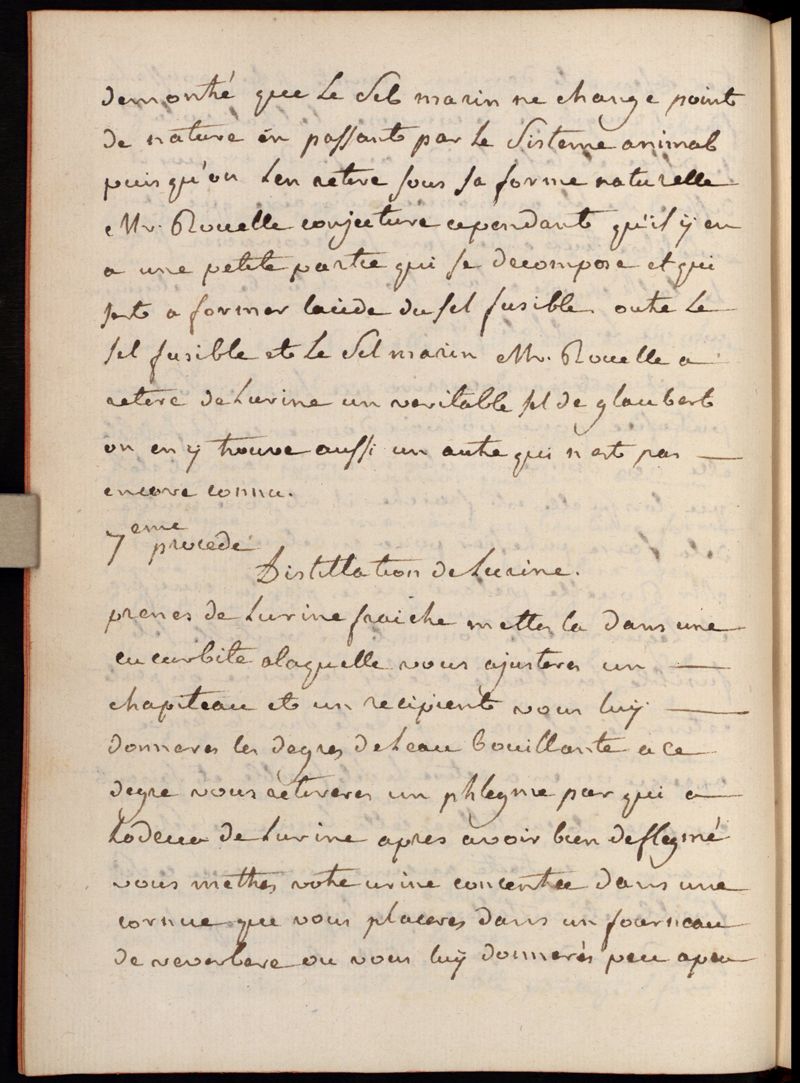 demontré que Le Sel marin ne change point
de nature en passant par Le Sisteme animal
puisqu'on Len retire sous sa forme naturelle
Mr. Rouelle conjecture cependant qu'il y en
a une petite partie qui se decompose et qui
sert a former lacide du sel fusible. outre Le
sel fusible et Le Sel marin Mr. Rouelle a
retiré de Lurine un veritable sel de glaubert
on en y trouve aussi un autre qui n est pas —
encore connu.
7 eme procedé
Distillation de Lurine.
prenes de Lurine fraiche mettes la dans une
cucurbite alaquelle vous ajusteres un —
chapiteau et un recipient vous luy —
donneres les degres de Leau bouillante a ce
degre vous retireres un phlegme par qui a
Lodeur de Lurine apres avoir bien deflegmé
vous mettres votre urine concentrée dans une
cornue que vous placeres dans un fourneau
de reverbere ou vous luy donnerés peu apeu